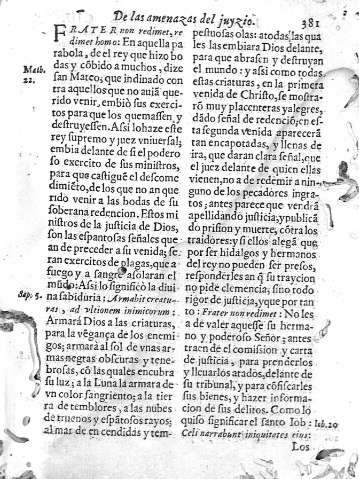 De las amenazas del juyzio. 381
FRATER non redimet, re-
dimet homo: En aquella pa
rabola, de el rey que hizo bo
das y cõbido a muchos, dize
san Mateo, que indinado con
tra aquellos que no auiã que-
rido venir, embiò sus exerci-
tos para que los quemassen, y
destruyessen. Assi lo haze este
rey supremo y juez vniuersal;
embia delante de si el podero
so exercito de sus ministros,
para que castiguẽ el descome
dimiẽto, de los que no an que
rido venir a las bodas de su
soberana redencion. Estos mi
nistros de la justicia de Dios,
son las espantosas señales que
an de preceder a su venida; se-
ran exercitos de plagas, que a
fuego y a sangre asolaran el
mũdo: Assi lo significò la diui-
na sabiduria: Armabit creatu-
ras, ad vltionem inimicorum:
Armarà Dios a las criaturas,
para la vẽgança de los enemi-
gos; armarà al sol de vnas ar-
mas negras obscuras y tene-
brosas, cõ las quales encubra
su luz; a la Luna la armara de
vn color sangriento; a la tier
ra de temblores, a las nubes
de truenos y espãtosos rayos;
al mar de encendidas y tem-
Math.
22.
Sap. 5.
pestuosas olas: a todas, las qua
les las embiara Dios delante,
para que abrasen y destruyan
el mundo: y assi como todas
estas criaturas, en la primera
venida de Christo, se mostra-
rõ muy placenteras y alegres,
dãdo señal de redenciõ; en es-
ta segunda venida aparecerã
tan encapotadas, y llenas de
ira, que daran clara señal, que
el juez delante de quien ellas
vienen, no a de redemir a nin-
guno de los pecadores ingra-
tos; antes parece que vendrà
apellidando justicia, y publicã
do prison y muerte, cõtra los
traidores: y si ellos alegã que
por ser hidalgos y hermanos
del rey no pueden ser presos,
responderles an q̃ su traycion
no pide clemencia; sino todo
rigor de justicia, y que por tan
to: Frater non redimet: No les
a de valer aquesse su herma-
no y poderoso Señor; antes
tracen de el comission y carta
de justicia, para prenderles
y lleuarlos atados, delante de
su tribunal, y para cõfiscarles
sus bienes, y hazer informa-
cion de sus delitos. Como lo
quiso significar el santo Iob:
Celi narrabunt iniquitates eius:
Iob. 20
Los